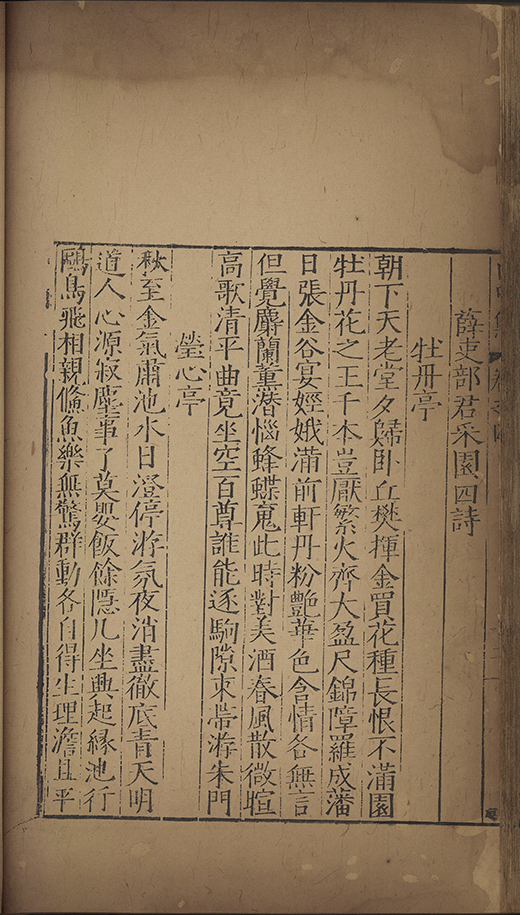 薛吏部君采園四詩
牡丹亭
朝下天老堂夕歸卧丘樊揮金買花種長恨不滿園
牡丹花之王千本豈厭繁火齊大盈尺錦障羅成藩
日張金谷宴娙娥滿前軒丹粉艷華色含情各無言
但覺麝蘭薰潛惱蜂蝶䰟此時對美酒春風散微暄
高歌清平曲竟坐空百尊誰能逐駒隙束帶游朱門
瑩心亭
秋至金氣肅池水日澄停游氛夜消盡徹底青天明
道人心源寂塵事了莫嬰飯餘隱几坐興起緣池行
鷗鳥飛相親鯈魚樂無驚群動各自得生理澹且平